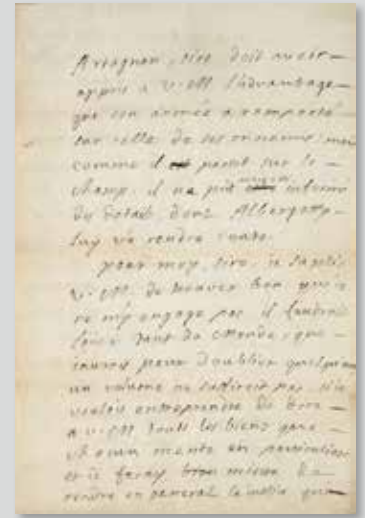 Artagnan, sire doit avoir
appris a v. M l'advantage
que son armée a remporté
sur celle de ses ennemis mais
comme il partit sur le
champ, il ne put
du detail, dont Albergotty
luy va rendre conte.
pour moy, sire, je suplie
v. M. de trouver bon que je
ne m'y engage pas il faudroit
louer tant de monde, que
j'aurois peur d'oublier quelqu'un
un volume ne suffiroit pas, si je
voulois entreprendre de dire
a v. M touts les biens que
chacun merite en particulier
et je feray mieux de
rendre en general la justice qui